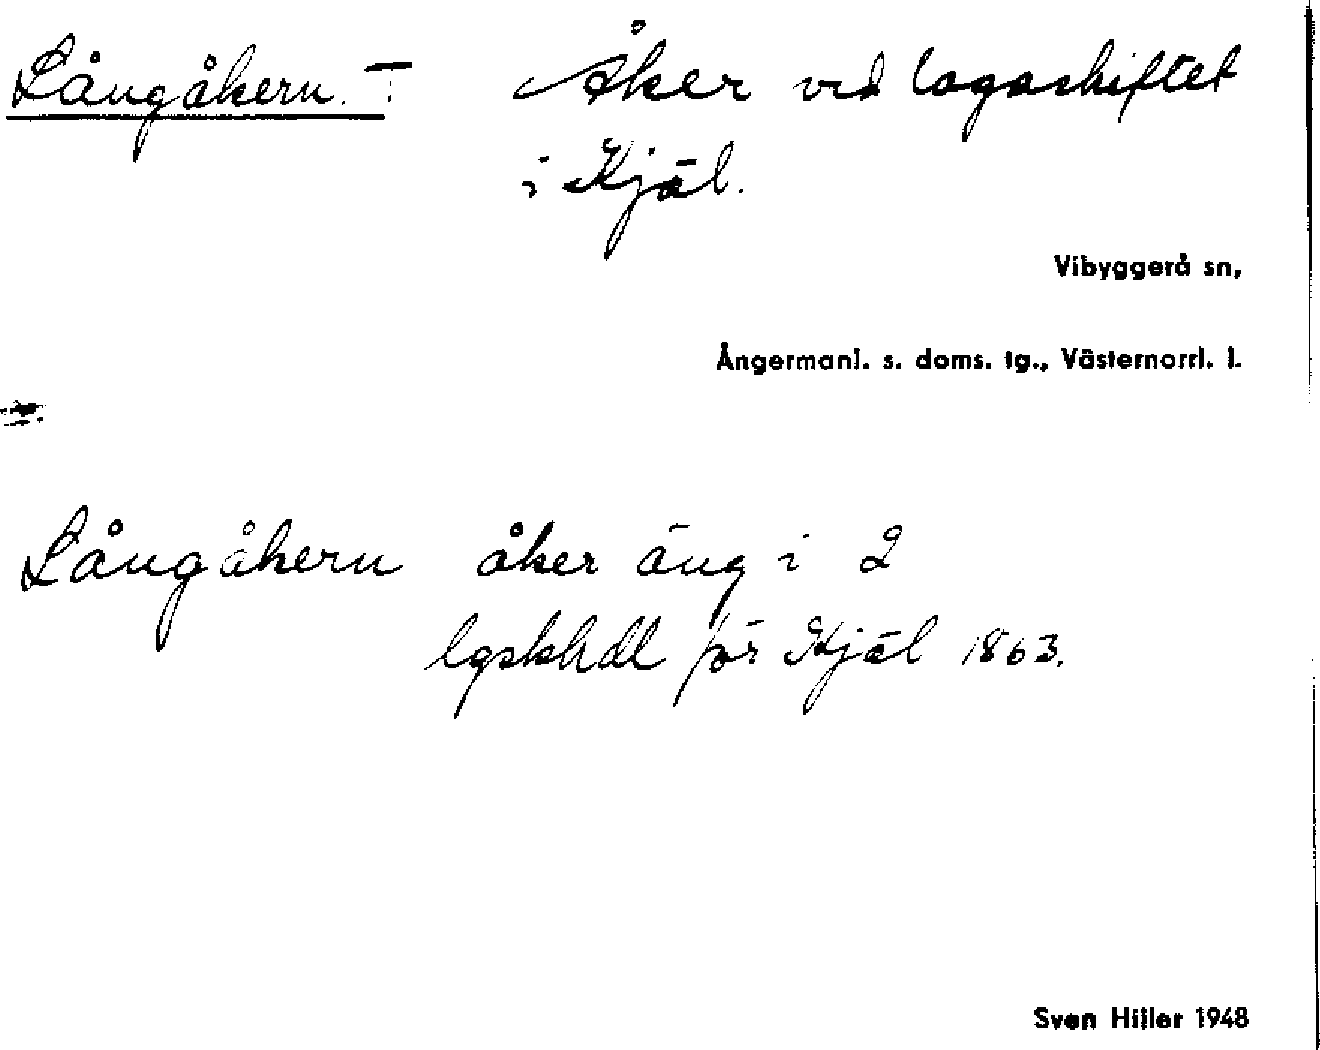 Långåkern. Åker vid lagaskiftet
i Kjäl.
Vibyggerå sn,
Ångermanl. s. doms. tg., Västernorrl. l.
Långåkern åker äng i 2
lgskhdl för Kjäl 1863.
Sven Hiller 1948